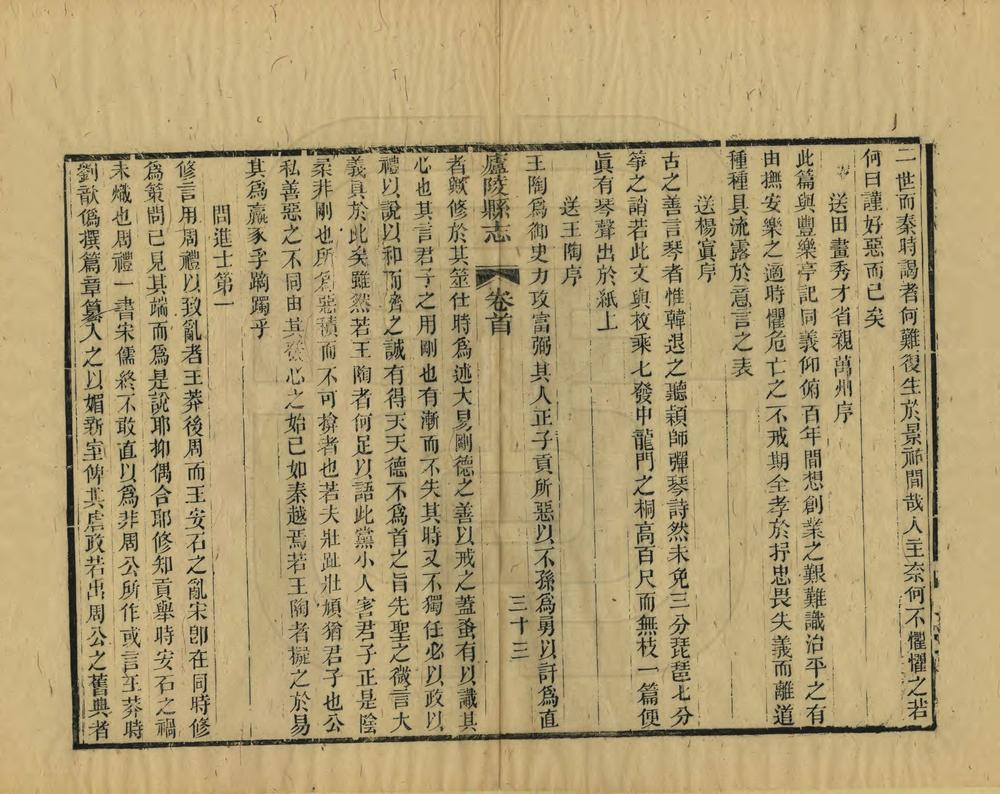 二世而秦時謁者何難復生於景祐間哉人主奈何不懼懼之若
何曰謹好惡而已矣
送田畫秀才省親萬州序
此篇與豐樂亭記同義仰俯百年間想創業之艱難識治平之有
由撫安樂之適時懼危亡之不戒期全孝於抒忠畏失義而離道
種種具流露於意言之表
送楊寘序
古之善言琴者惟韓退之聽穎師彈琴詩然未免三分琵琶七分
箏之誚若此文與枚乘七發中龍門之桐高百尺而無枝一篇便
眞有琴聲出於紙上
送王陶序
王陶爲御史力攻富弼其人正子貢所惡以不孫爲勇以訐爲直
廬陵縣志
卷首
三十三
者歟修於其筮仕時爲述大易剛德之善以戒之蓋蚤有以識其
心也其言君子之用剛也有漸而不失其時又不獨任必以政以
禮以說以和而濟之誠有得天天德不爲首之旨先聖之微言大
義具於此矣雖然若王陶者何足以語此黨小人害君子正是陰
柔非剛也所爲惡積而不可揜者也若夫壯趾壯頄猶君子也公
私善惡之不同由其發心之始已如秦越焉若王陶者擬之於易
其爲羸豕孚蹢躅乎
問進士第一
修言用周禮以致亂者王莽後周而王安石之亂宋卽在同時修
爲策問已見其端而爲是說耶抑偶合耶修知貢舉時安石之禍
未熾也周禮一書宋儒終不敢直以爲非周公所作或言王莽時
劉歆僞撰篇章纂入之以媚新室俾其虐政若出周公之舊典者